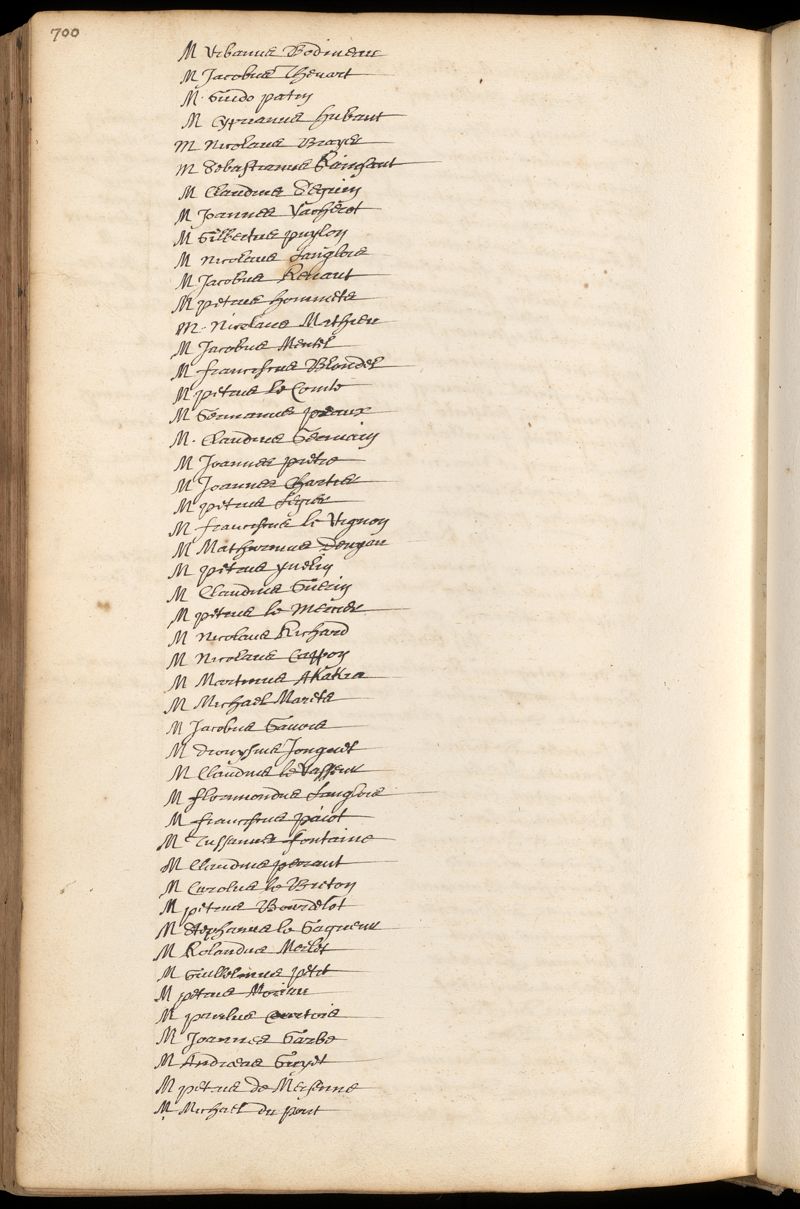 700
M Urbanus Bodineau
M Jacobus Thevart
M. Guido patin
M Cyprianus hubaut
M Nicolaus Brayer
M Sebastianus Rainssant
M Claudius Seguin
M Joannes Vacherot
M Gilbertus puylon
M Nicolaus Langlois
M Jacobus Renaut
M petrus hommets
M. Nicolaus Mathieu
M Jacobus Mentel
M franciscus Blondel
M petrus le Comte
M Germanus preaux
M. Claudius Germain
M Joannes pietre
M Joannes Chartier
M petrus Legier
M franciscus le Vignon
M Mathurinus Denyau
M petrus yvelin
M Claudius Guerin
M petrus le Mercier
M Nicolaus Richard
M Nicolaus Cappon
M Martinus Akakia
M Michael Marets
M Jacobus Gavois
M dionysius Jonquet
M Claudius le Vasseur
M florimondus Langlois
M franciscus paiot
M Tussanus fontaine
M Claudius perraut
M Carolus le Breton
M petrus Bourdelot
M Stephanus le Gagneur
M Rolandus Merlet
M Guillelmus petit
M petrus Moriau
M paulus Courtois
M Joannes Garbe
M Andreas Guyet
M petrus de Mersenne
M Michael du pont